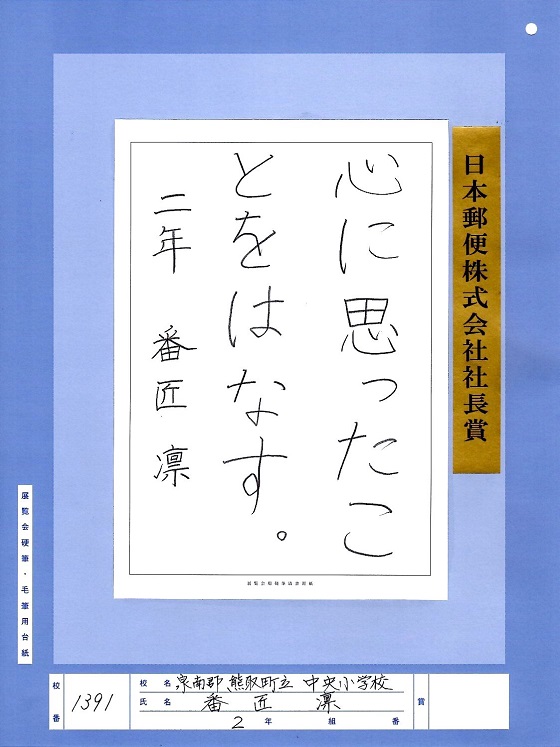 日本郵便株式会社社長賞
心に思ったこ
とをはなす。
二年 番匠 凛
展覧会硬筆・毛筆用台紙
校番 1391
校名 泉南郡 熊取町立 中央小学校
氏名 番匠 凛
2年 組 番
賞